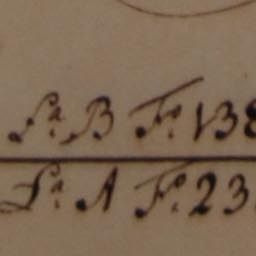 Lª. B Fº. 138
Lª. A Fº. 23